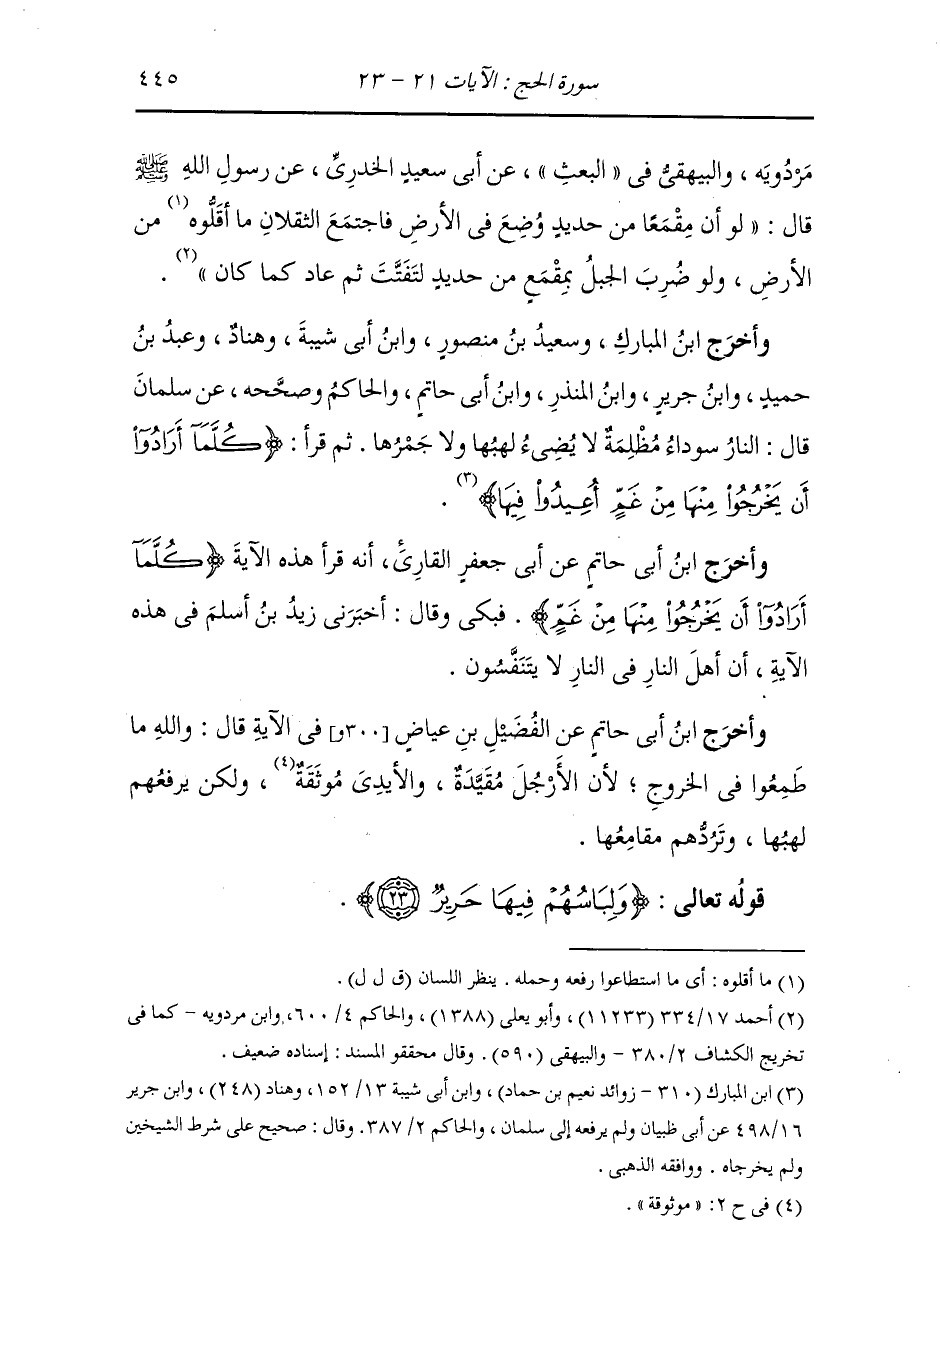 سورة الحج : الآيات ٢١ - ٢٣ ٤٤٥
مَرْدُويَه ، والبيهقىُّ فى « البعثِ » ، عن أبى سعيدٍ الخدرىِّ ، عن رسولِ اللهِ ﷺ
قال : « لو أن مِقْمَعًا من حديدٍ وُضِعَ فى الأرضِ فاجتمَعَ الثقلانِ ما أقَلُّوه(١) من
الأرضِ ، ولو ضُرِبَ الجبلُ بمِقْمَعٍ من حديدٍ لتَفَتَّتَ ثم عاد كما كان »(٢) .
وأخرَج ابنُ المباركِ ، وسعيدُ بنُ منصورٍ ، وابنُ أبى شيبةَ ، وهنادٌ ، وعبدُ بنُ
حميدٍ ، وابنُ جريرٍ ، وابنُ المنذرِ ، وابنُ أبى حاتمٍ ، والحاكمُ وصحَّحه ، عن سلمانَ
قال : النارُ سوداءُ مُظْلِمَةٌ لا يُضِىءُ لهبُها ولا جَمْرُها . ثم قرأ : ﴿كُلَّمَآ أَرَادُوٓاْ
أَن يَخْرُجُواْ مِنْهَا مِنْ غَمٍّ أُعِيدُواْ فِيهَا﴾(٣) .
وأخرَج ابنُ أبى حاتمٍ عن أبى جعفرٍ القارئَ ، أنه قرأ هذه الآيةَ ﴿كُلَّمَآ
أَرَادُوٓاْ أَن يَخْرُجُواْ مِنْهَا مِنْ غَمٍّ﴾ . فبكى وقال : أخبَرَنى زيدُ بنُ أسلمَ فى هذه
الآيةِ ، أن أهلَ النارِ فى النارِ لا يتَنَفَّسُون .
وأخرَج ابنُ أبى حاتمٍ عن الفُضَيْلِ بنِ عياضٍ [٣٠٠و] فى الآيةِ قال : واللهِ ما
طَمِعُوا فى الخروجِ ؛ لأن الأَرْجُلَ مُقَيَّدَةٌ ، والأيدِىَ مُوثَقَةٌ(٤) ، ولكن يرفعُهم
لهبُها ، وتَرُدُّهم مقامِعُها .
قولُه تعالى : ﴿وَلِبَاسُهُمْ فِيهَا حَرِيرٌ ٢٣﴾ .
(١) ما أقلوه : أى ما استطاعوا رفعه وحمله . ينظر اللسان (ق ل ل) .
(٢) أحمد ٣٣٤/١٧ (١١٢٣٣) ، وأبو يعلى (١٣٨٨) ، والحاكم ٤/ ٦٠٠، وابن مردويه - كما فى
تخريج الكشاف ٣٨٠/٢ - والبيهقى (٥٩٠) . وقال محققو المسند : إسناده ضعيف .
(٣) ابن المبارك (٣١٠ - زوائد نعيم بن حماد) ، وابن أبى شيبة ١٣/ ١٥٢، وهناد (٢٤٨) ، وابن جرير
٤٩٨/١٦ عن أبى ظبيان ولم يرفعه إلى سلمان ، والحاكم ٢/ ٣٨٧. وقال : صحيح على شرط الشيخين
ولم يخرجاه . ووافقه الذهبى .
(٤) فى ح ٢: « موثوقة » .